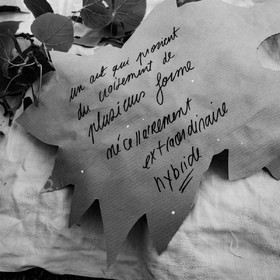 un art qui provient
du croisement de
plusieurs forme
nécessairement
extraordinaire
hybride